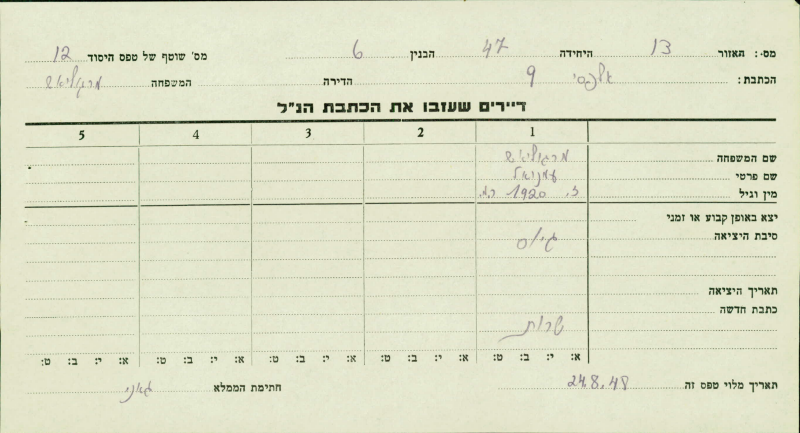 מס׳: האזור 13 היחידה 47 הבנין 6 מס׳ שוטף של טפס היסוד 12
הכתבת: אלפסי 9 הדירה המשפחה מרגוליאש
דיירים שעזבו את הכתבת הנ"ל
1 2 3 4 5
שם המשפחה מרגוליאש
שם פרטי עמנואל
מין וגיל ז. 1920
יצא באופן קבוע או זמני
סיבת היציאה גיוס
תאריך היציאה
כתבת חדשה
שרות
א: י: ב: ט: א: י: ב: ט: א: י: ב: ט: א: י: ב: ט: א: י: ב: ט:
תאריך מלוי טפס זה 24.8.48 חתימת הממלא